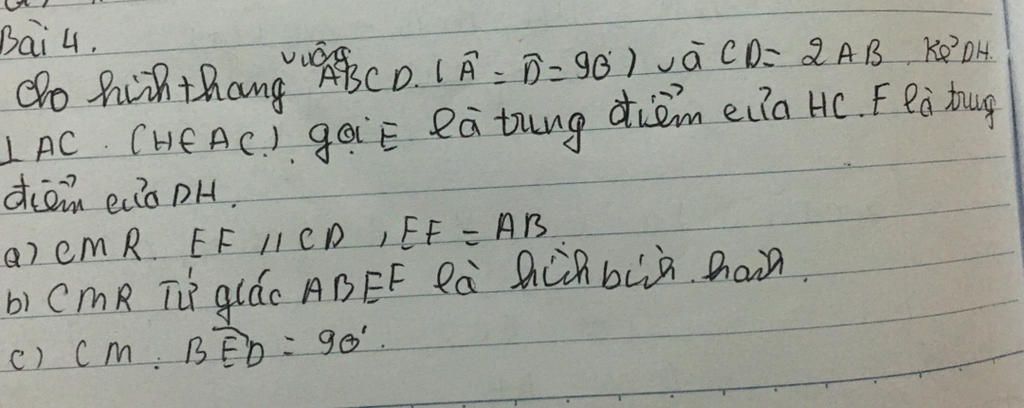 Bài 4.
Cho hình thang vuông ABCD. (Â = D̂ = 90°) và CD = 2AB. Kẻ DH
⊥ AC. (H∈AC). gọi E là trung điểm của HC. F là trung
điểm của DH.
a) CMR. EF // CD, EF = AB
b) CMR Tứ giác ABEF là hình bình hành.
c) CM. BÊD = 90°.